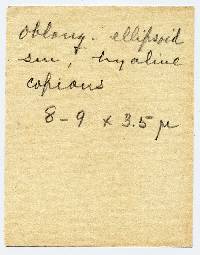 oblong. ellipsoid
sm, hyaline
copious
8-9 x 3.5 µ